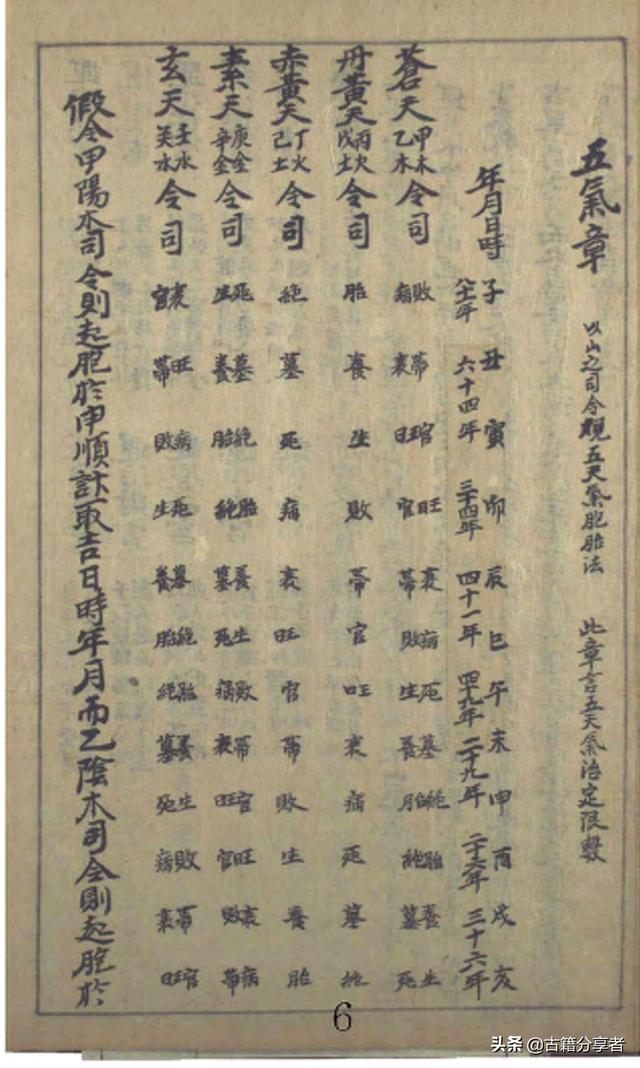 五氣章 以山之司令觀五天氣胞胎法 此章言五天氣治定限數
年月日時 子丑寅卯辰巳午未申酉戌亥
六十四年 三十四年 四十一年 四十九年 二十九年 二十六年 三十六年
蒼天 甲木乙木 令司 敗帶官旺衰病死墓絶胎養生
病衰旺官帶敗生養月絶墓死
丹黃天 丙火戊土 令司 胎養生敗帶官旺衰病死墓絶
赤黃天 丁火己土 令司 絶墓死病衰旺官帶敗生養胎
素天 庚金辛金 令司 死墓絶胎養生敗帶官旺衰病
生養胎絶墓死病衰旺官敗帶
玄天 壬水癸水 令司 衰旺病死墓絶胎養生敗帶官
官帶敗生養胎絶墓死病衰旺
假令甲陽木司令則起胞於申順計取吉日時年月而乙陰木司令則起胞於
6
头条 @古籍分享者